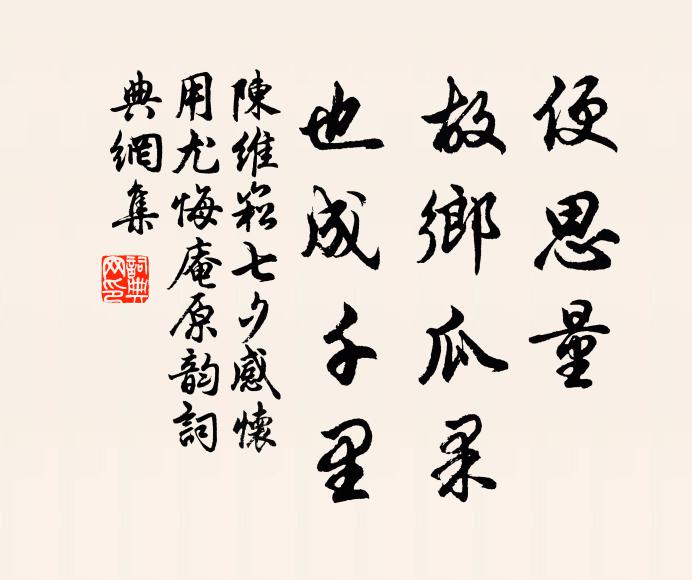 便思量
故鄉瓜果
也成千里
陳維崧七夕感懷
用尤悔庵原韵詞
典網集
詞典
网印